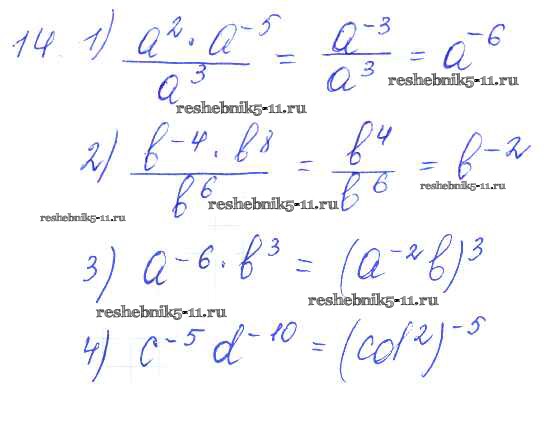 14. 1) a² · a⁻⁵ / a³ = a⁻³ / a³ = a⁻⁶
reshebnik5-11.ru
reshebnik5-11.ru
2) b⁻⁴ · b⁸ / b⁶ = b⁴ / b⁶ = b⁻²
reshebnik5-11.ru
reshebnik5-11.ru
reshebnik5-11.ru
3) a⁻⁶ · b³ = (a⁻²b)³
reshebnik5-11.ru
reshebnik5-11.ru
4) c⁻⁵ d⁻¹⁰ = (cd²)⁻⁵